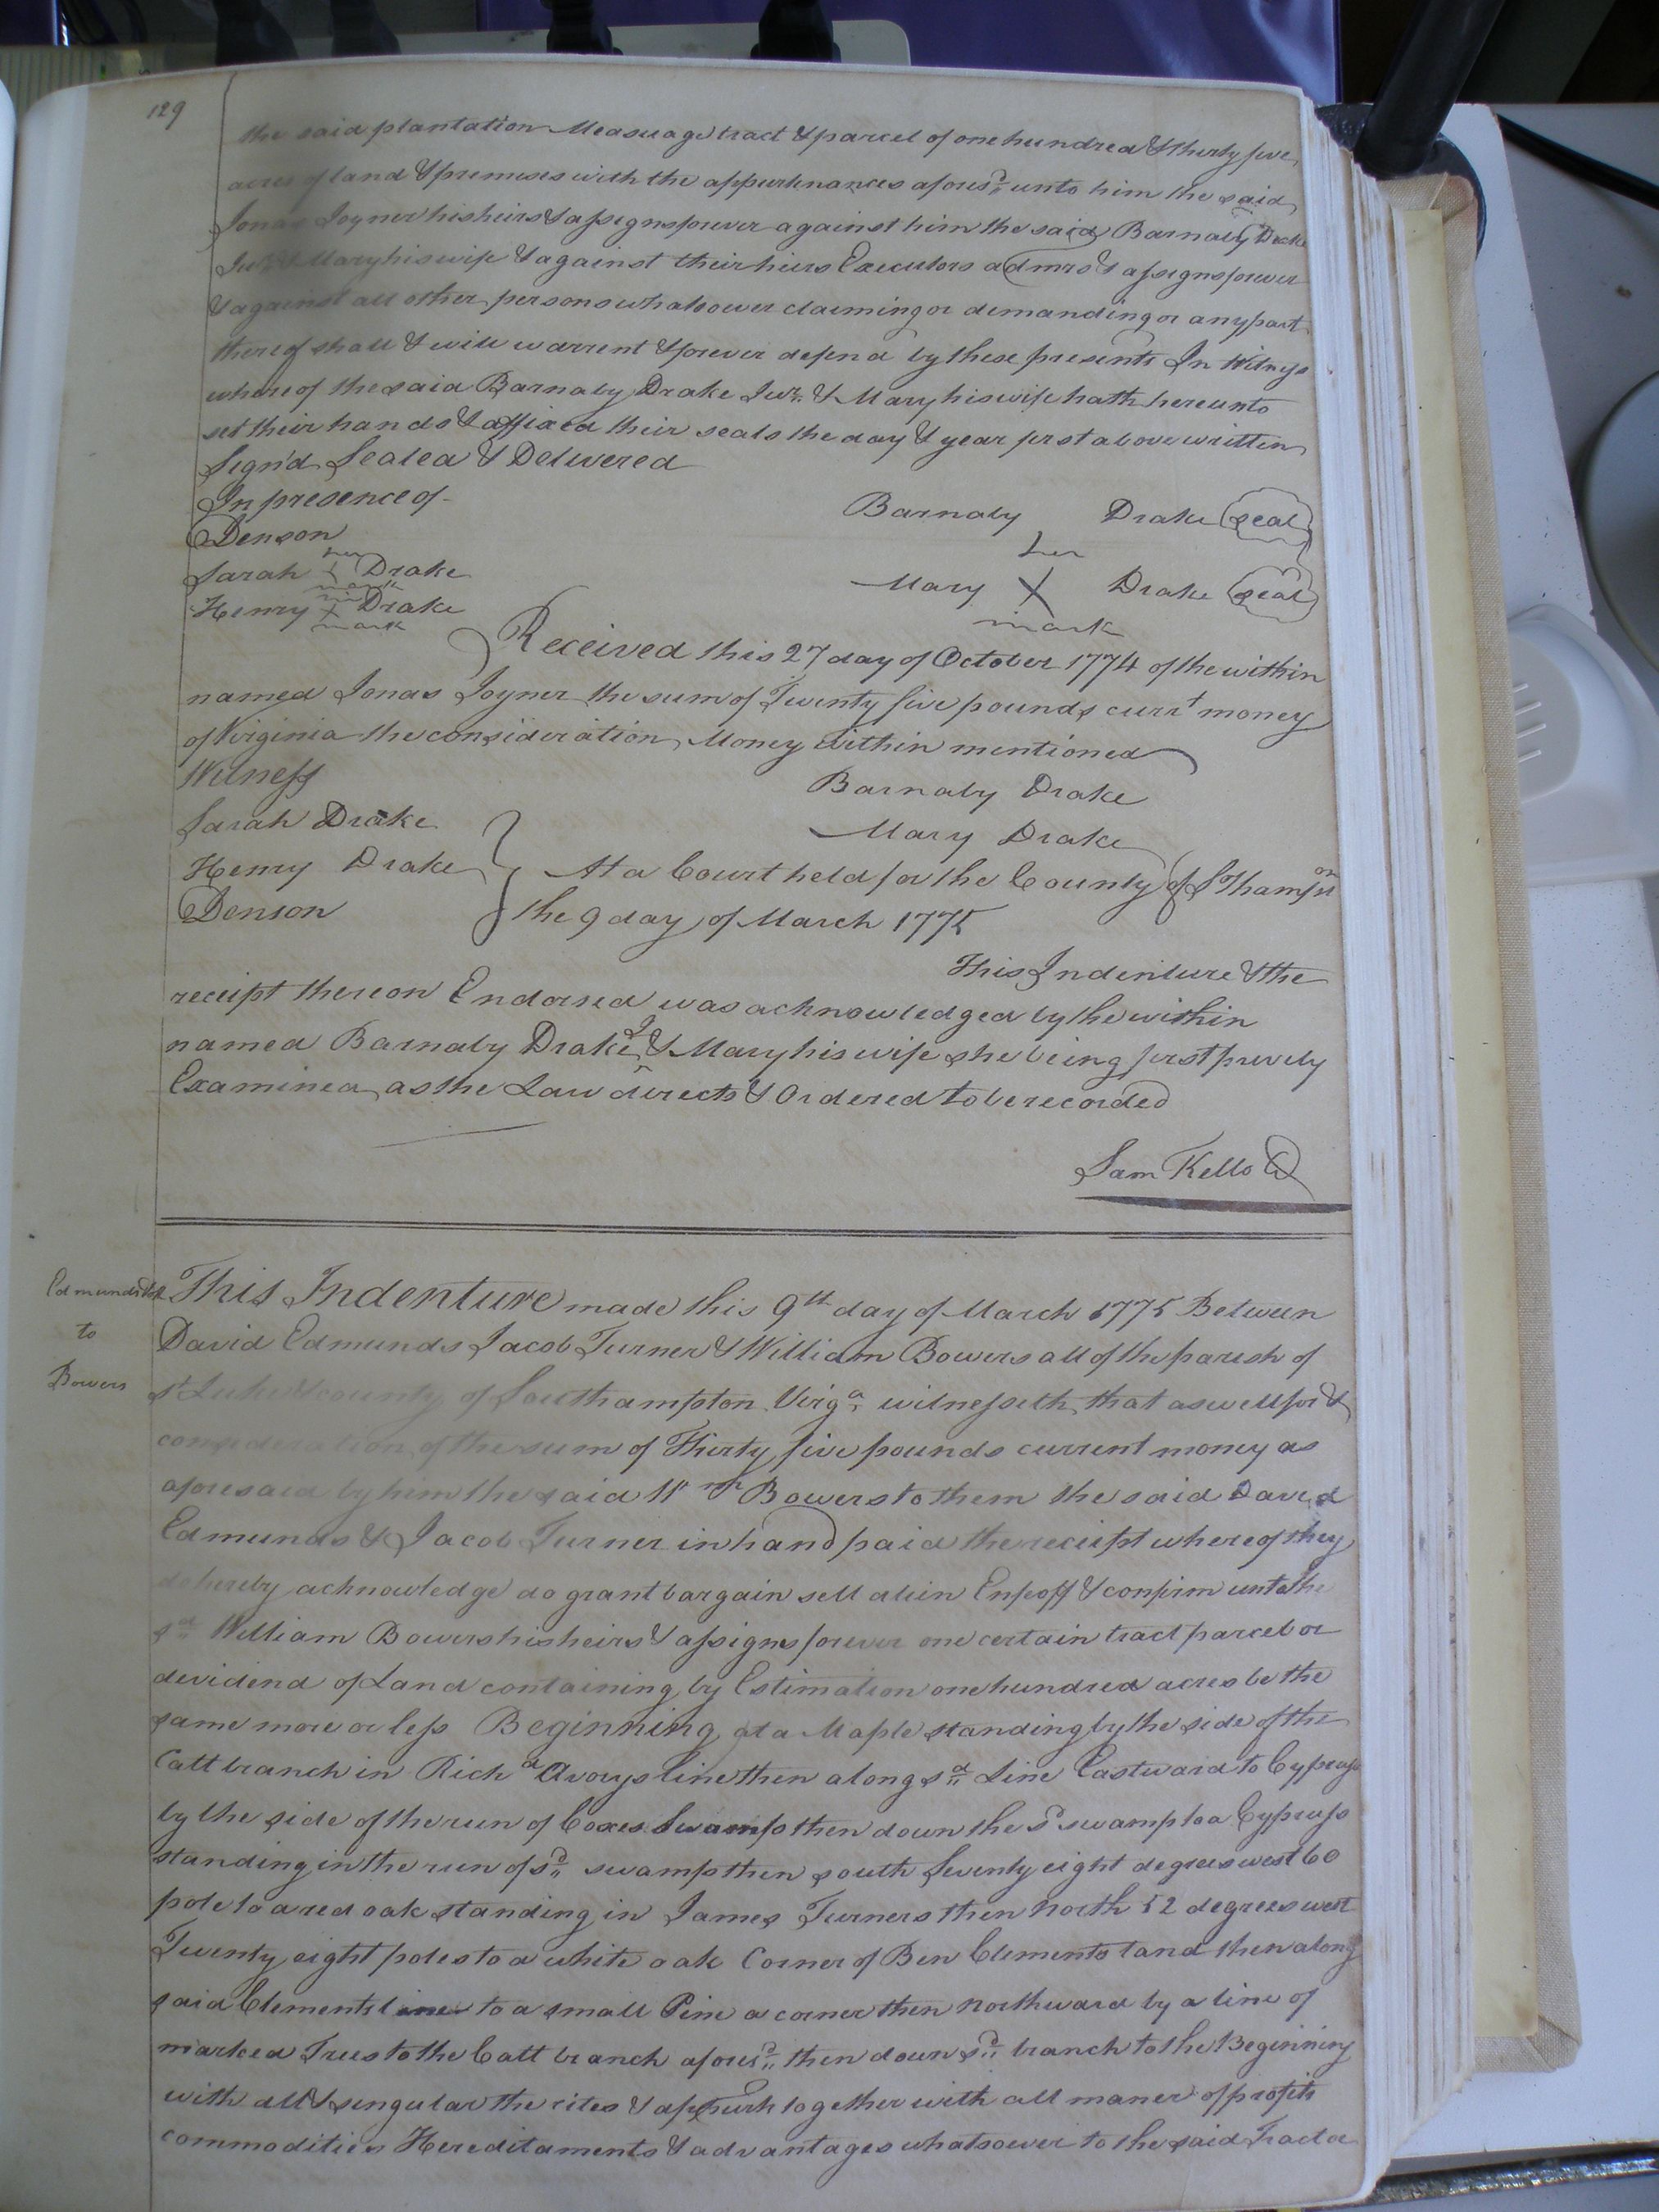 129
the said plantation Measuage tract & parcel of one hundred & thirty five
acres of land & premises with the appurtenances afores.d unto him the said
Jonas Joyner his heirs & assigns forever against him the said Barnaby Drake
Jur. & Mary his wife & against their heirs Executors admrs & assigns forever
& against all other persons whatsoever claiming or demanding or any part
thereof shall & will warrent & forever defend by these presents In Witness
where of the said Barnaby Drake Jur. & Mary his wife hath hereunto
set their hands & affixed their seals the day & year first above written
Sign'd Sealed & Delivered
In presence of
Barnaby Drake seal
Denson
her
Sarah Drake
mark
her
Mary X Drake seal
mark
Henry X Drake
mark
Received this 27 day of October 1774 of the within
named Jonas Joyner the sum of Twenty five pounds curr.t money
of Virginia the consideration Money within mentioned
Witness
Barnaby Drake
Sarah Drake
Mary Drake
Henry Drake
At a Court held for the County of S.Thampton
Denson
the 9 day of March 1775
This Indenture & the
receipt thereon Endorsed was acknowledged by the within
named Barnaby Drake J & Mary his wife she being first prively
Examined as the Law directs & Ordered to be recorded
Sam Kello
Edmunds
to
Bowers
This Indenture made this 9th day of March 1775 Between
David Edmunds Jacob Turner & William Bowers all of the parish of
St Luke & county of Southampton Virg.a witnesseth that as well for &
consideration of the sum of Thirty five pounds current money as
aforesaid by him the said Wm Bowers to them the said David
Edmunds & Jacob Turner in hand paid the reciept whereof they
do hereby acknowledge do grant bargain sell alien Enfeoff & confirm unto the
sd William Bowers his heirs & assigns forever one certain tract parcel or
devidend of Land containing by Estimation one hundred acres be the
same more or less Beginning at a Maple standing by the side of the
Catt branch in Richd Avorys line then along sd Line Eastward to Cypress
by the side of the run of Coxes Swamp then down the sd swamp to a Cypress
standing in the run of sd swamp then south Seventy eight degrees west 60
pole to a red oak standing in James Turners then North 52 degrees west
Twenty eight poles to a white oak Corner of Ben Clements land then along
said Clements line to a small Pine a corner then northward by a line of
marked Trees to the Catt branch aforesd then down sd branch to the Beginning
with all & singular the rites & appurts together with all maner of profits
commodities Hereditaments & advantages whatsoever to the said Tract or